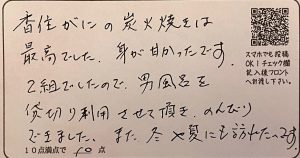 香住がにの炭火焼きは
最高でした。身が甘かったです。
2組でしたので、男風呂を
貸切り利用させて頂き、のんびり
できました。また冬や夏にも訪れたいです。
10点満点で 点
スマホでも投稿
OK!チェック欄
記入後フロント
へお渡し下さい。